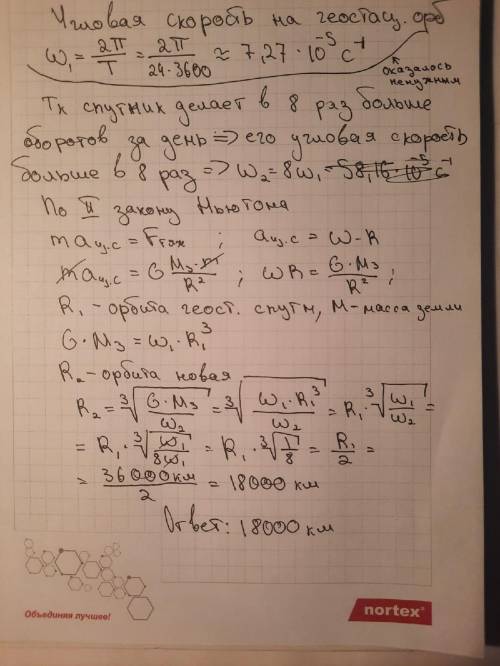 Угловая скорость на геостац. орб
ω₁ = 2π/T = 2π/24·3600 ≈ 7,27 · 10⁻⁵ с⁻¹
оказалось ненужным
Тк спутник делает в 8 раз больше
оборотов за день => его угловая скорость
больше в 8 раз => ω₂ = 8ω₁ = 58,16 · 10⁻⁵ с⁻¹
По II закону Ньютона
m aц.с = Fтяж ; aц.с = ω·R
m aц.с = G Mз·m/R² ; ωR = G·Mз/R² ;
R₁ - орбита геост. спутн, M - масса земли
G·Mз = ω₁·R₁³
R₂ - орбита новая
R₂ = ∛(G·Mз/ω₂) = ∛(ω₁·R₁³/ω₂) = R₁·∛(ω₁/ω₂) =
= R₁·∛(ω₁/8ω₁) = R₁·∛(1/8) = R₁/2 =
= 36000км/2 = 18000 км
Ответ: 18000 км
Объединяя лучшее!
nortex®